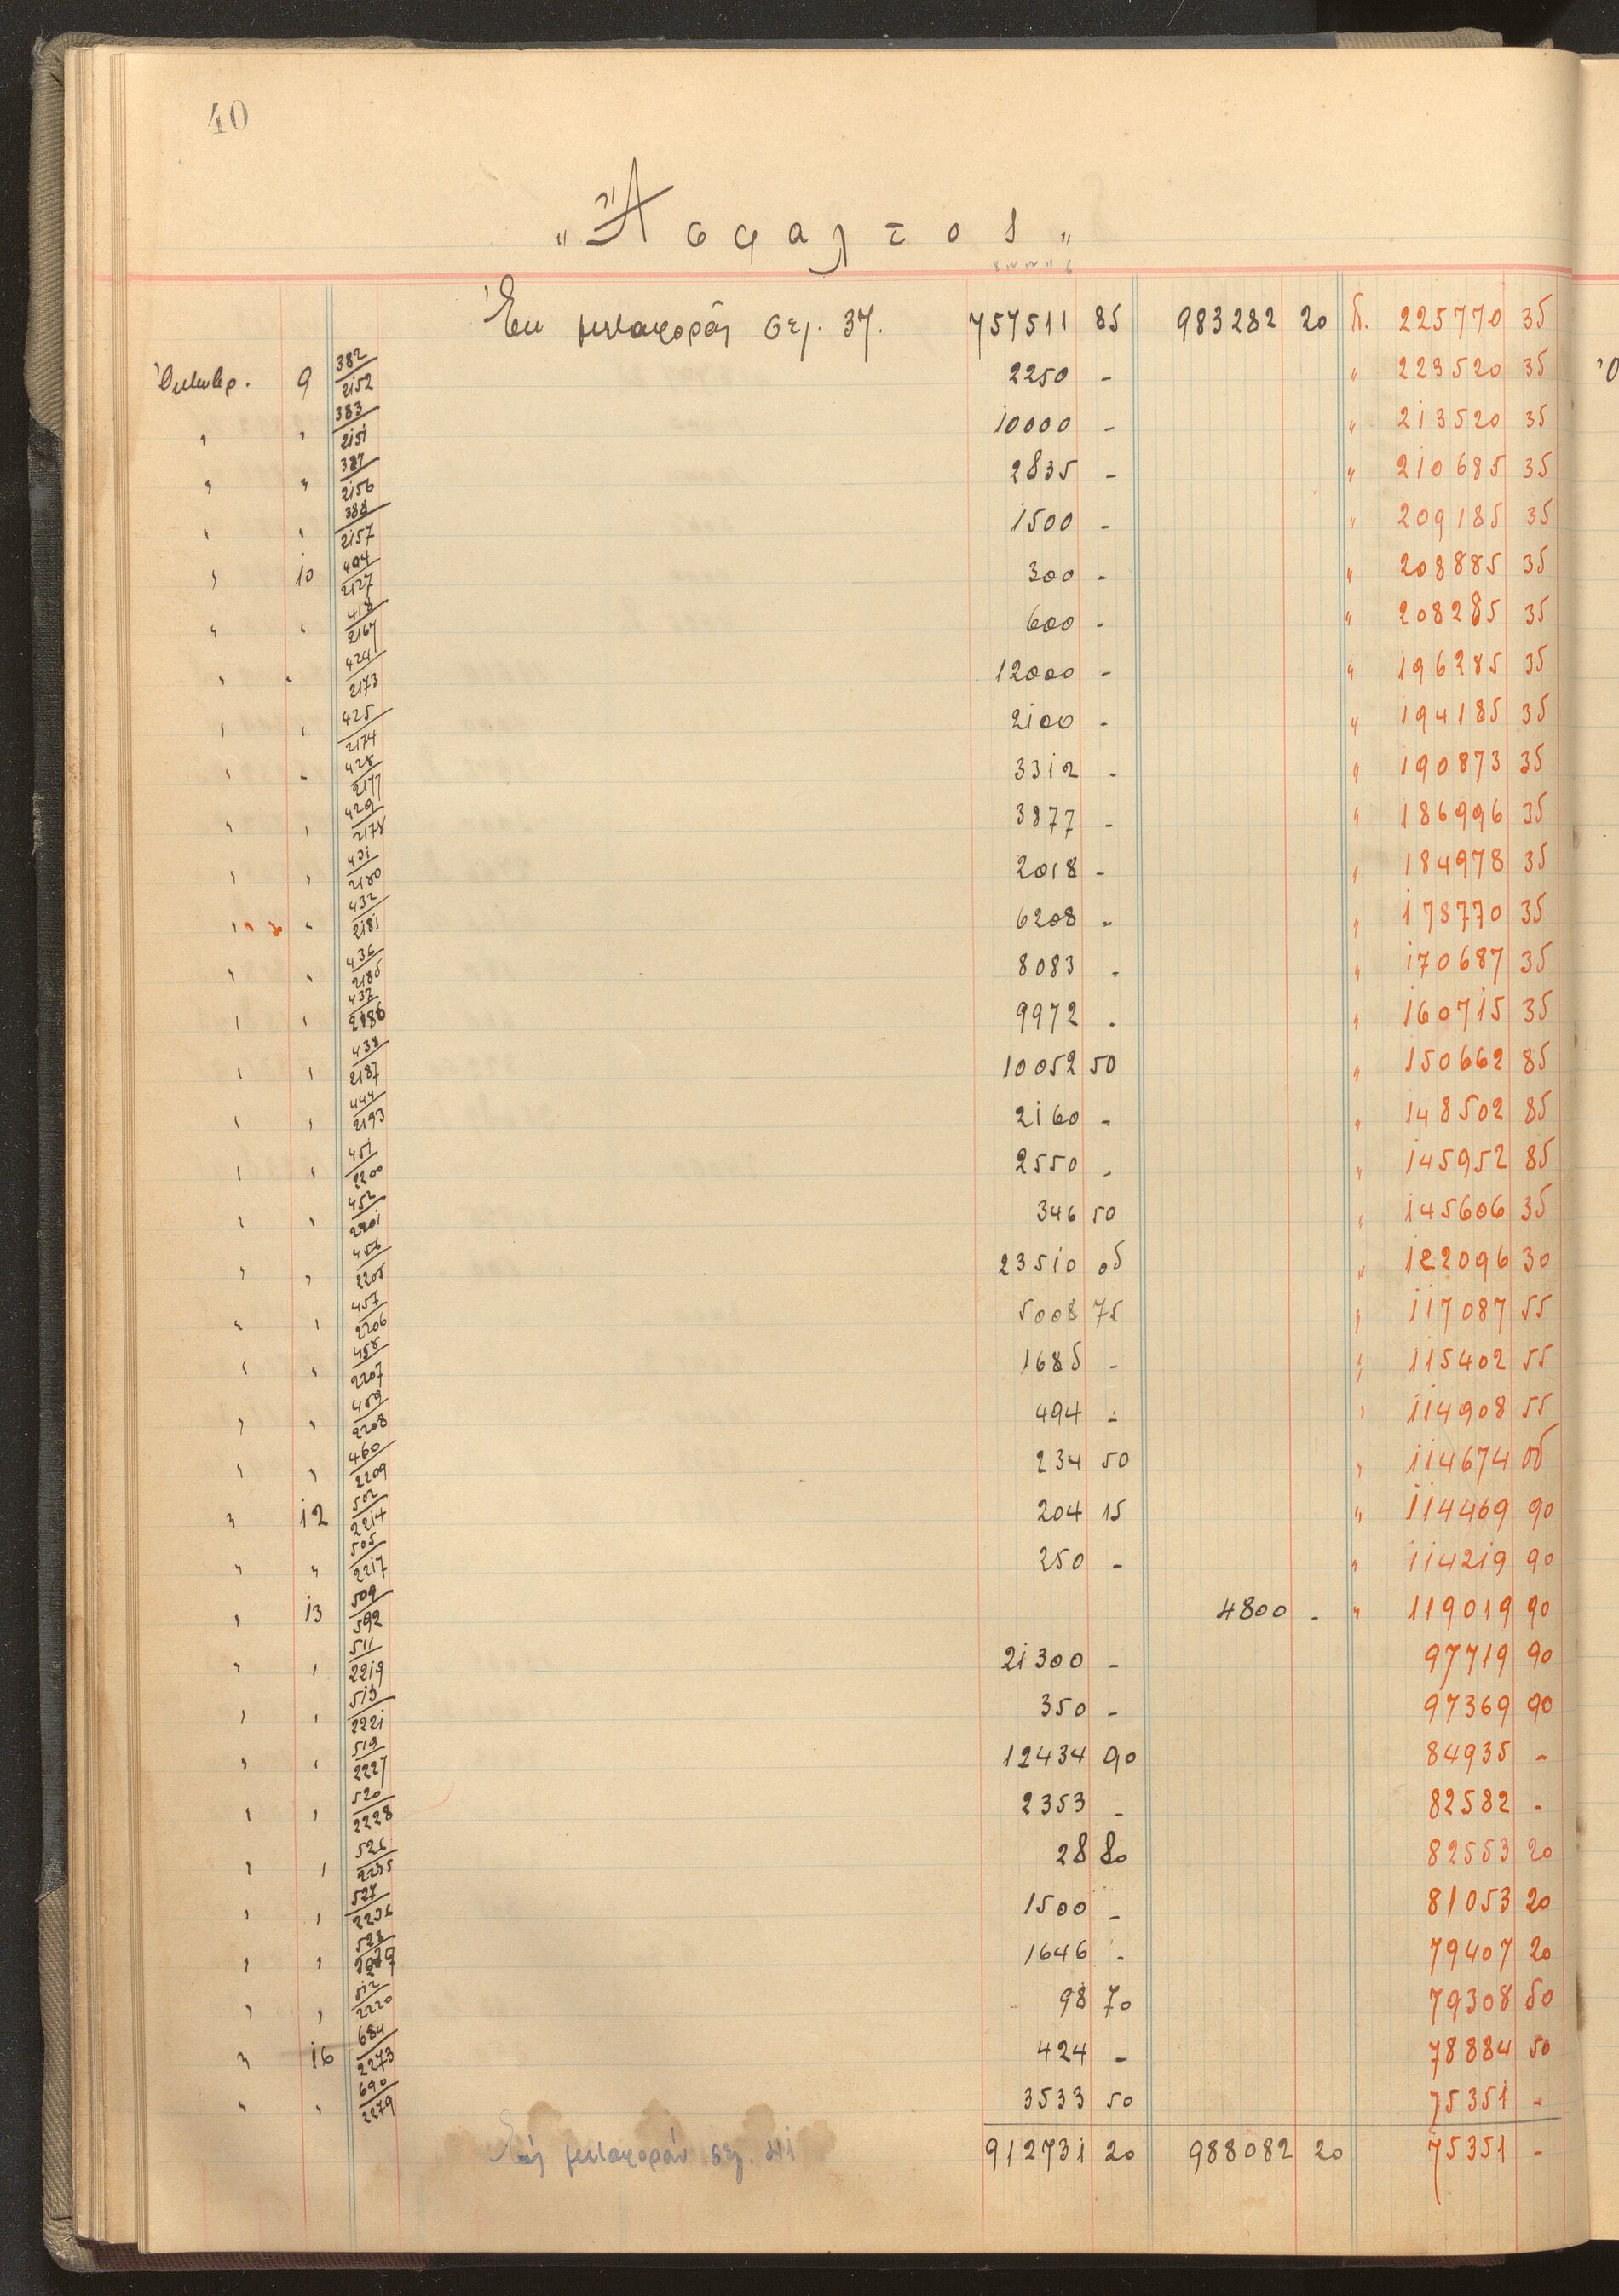 40
"Ἄσφαλτος"
Ἐκ μεταφορᾶς σελ. 37. 757511 85 983282 20 Π. 225770 35
Ὀκτωβρ. 9 382/2152 2250 - " 223520 35
" " 383/2151 10000 - " 213520 35
" " 387/2156 2835 - " 210685 35
" " 388/2157 1500 - " 209185 35
" 10 404/2127 300 - " 208885 35
" " 418/2167 600 - " 208285 35
" " 424/2173 12000 - " 196285 35
" " 425/2174 2100 - " 194185 35
" " 428/2177 3312 - " 190873 35
" " 429/2178 3877 - " 186996 35
" " 431/2180 2018 - " 184978 35
" " 432/2181 6208 - " 178770 35
" " 436/2185 8083 - " 170687 35
" " 437/2186 9972 - " 160715 35
" " 438/2187 10052 50 " 150662 85
" " 444/2193 2160 - " 148502 85
" " 451/2200 2550 - " 145952 85
" " 452/2201 346 50 " 145606 35
" " 456/2205 23510 05 " 122096 30
" " 457/2206 5008 75 " 117087 55
" " 458/2207 1685 - " 115402 55
" " 459/2208 494 - " 114908 55
" " 460/2209 234 50 " 114674 05
" 12 502/2214 204 15 " 114469 90
" " 505/2217 250 - " 114219 90
" 13 509/592 4800 - " 119019 90
" " 511/2219 21300 - 97719 90
" " 513/2221 350 - 97369 90
" " 519/2227 12434 90 84935 -
" " 520/2228 2353 - 82582 -
" " 526/2235 28 80 82553 20
" " 527/2236 1500 - 81053 20
" " 528/2237 1646 - 79407 20
" " 512/2220 98 70 79308 50
" 16 684/2273 424 - 78884 50
" " 690/2279 3533 50 75351 -
Εἰς μεταφοράν σελ. 41 912731 20 988082 20 75351 -